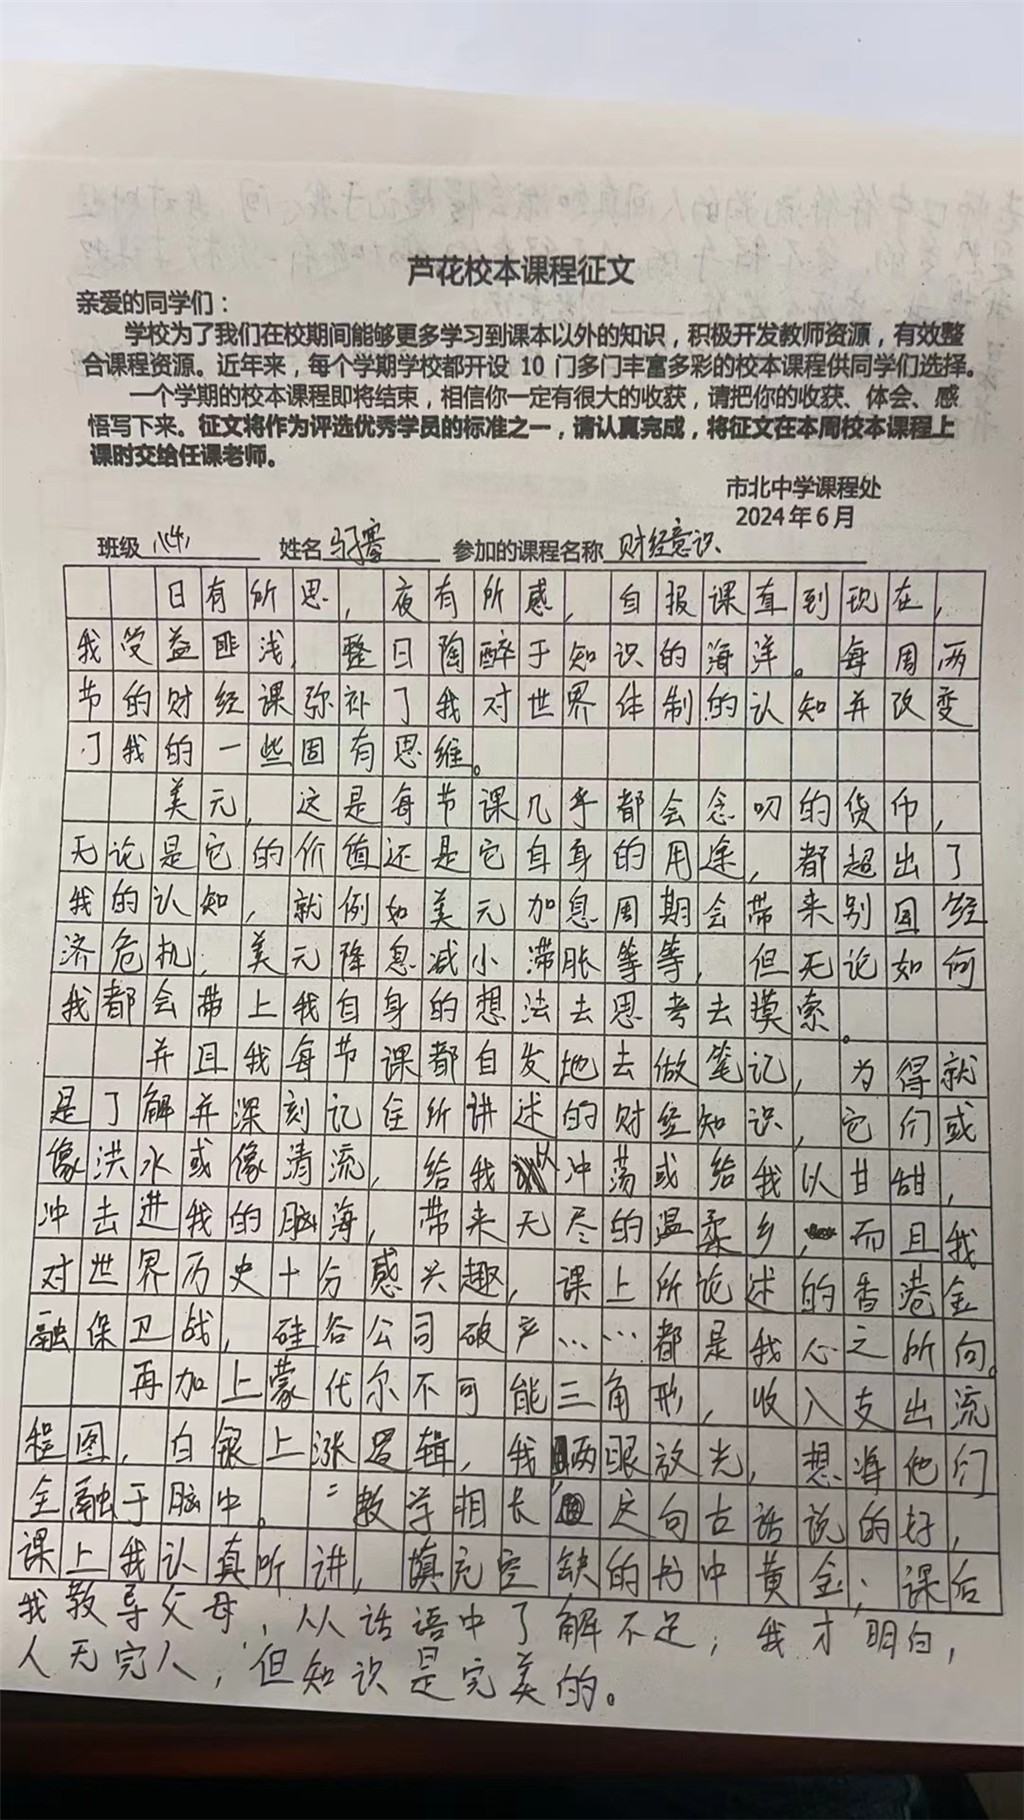 芦花校本课程征文
亲爱的同学们：
学校为了我们在校期间能够更多学习到课本以外的知识，积极开发教师资源，有效整
合课程资源。近年来，每个学期学校都开设 10 门多门丰富多彩的校本课程供同学们选择。
一个学期的校本课程即将结束，相信你一定有很大的收获，请把你的收获、体会、感
悟写下来。征文将作为评选优秀学员的标准之一，请认真完成，将征文在本周校本课程上
课时交给任课老师。
市北中学课程处
2024 年 6 月
班级 姓名 参加的课程名称 财经意识
日有所思，夜有所感，自报课直到现在，
我受益匪浅，整日陶醉于知识的海洋。每周两
节的财经课弥补了我对世界体制的认知并改变
了我的一些固有思维。
美元，这是每节课几乎都会念叨的货币，
无论是它的价值还是它自身的用途，都超出了
我的认知，就例如美元加息周期会带来别国经
济危机，美元降息减小滞胀等等，但无论如何
我都会带上我自身的想法去思考去摸索。
并且我每节课都自发地去做笔记，为得就
是了解并深刻记住所讲述的财经知识，它们或
像洪水或像清流，给我以冲荡或给我以甘甜，
冲去进我的脑海，带来无尽的温柔乡，而且我
对世界历史十分感兴趣，课上所论述的香港金
融保卫战，硅谷公司破产……都是我心之所向。
再加上蒙代尔不可能三角形，收入支出流
程图，白银上涨逻辑，我两眼放光，想将他们
全融于脑中。“教学相长”这句古话说的好，
课上我认真听讲，填充空缺的书中黄金；课后
我教导父母，从话语中了解不足；我才明白，
人无完人，但知识是完美的。